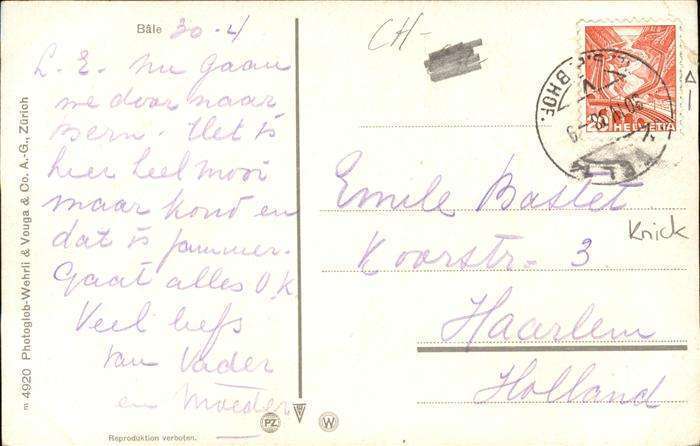 Bâle 30-4
L. E. nu gaan
we door naar
Bern. Het is
hier heel mooi
maar koud en
dat is jammer.
Gaat alles O.K.
Veel liefs
van Vader
en Moeder
m 4920 Photoglob-Wehrli & Vouga & Co. A.-G., Zürich
Reproduktion verboten.
PZ
W
CH-
HELVETIA
BHF.
Emile Bastet
Knick
Koorstr. 3
Haarlem
Holland